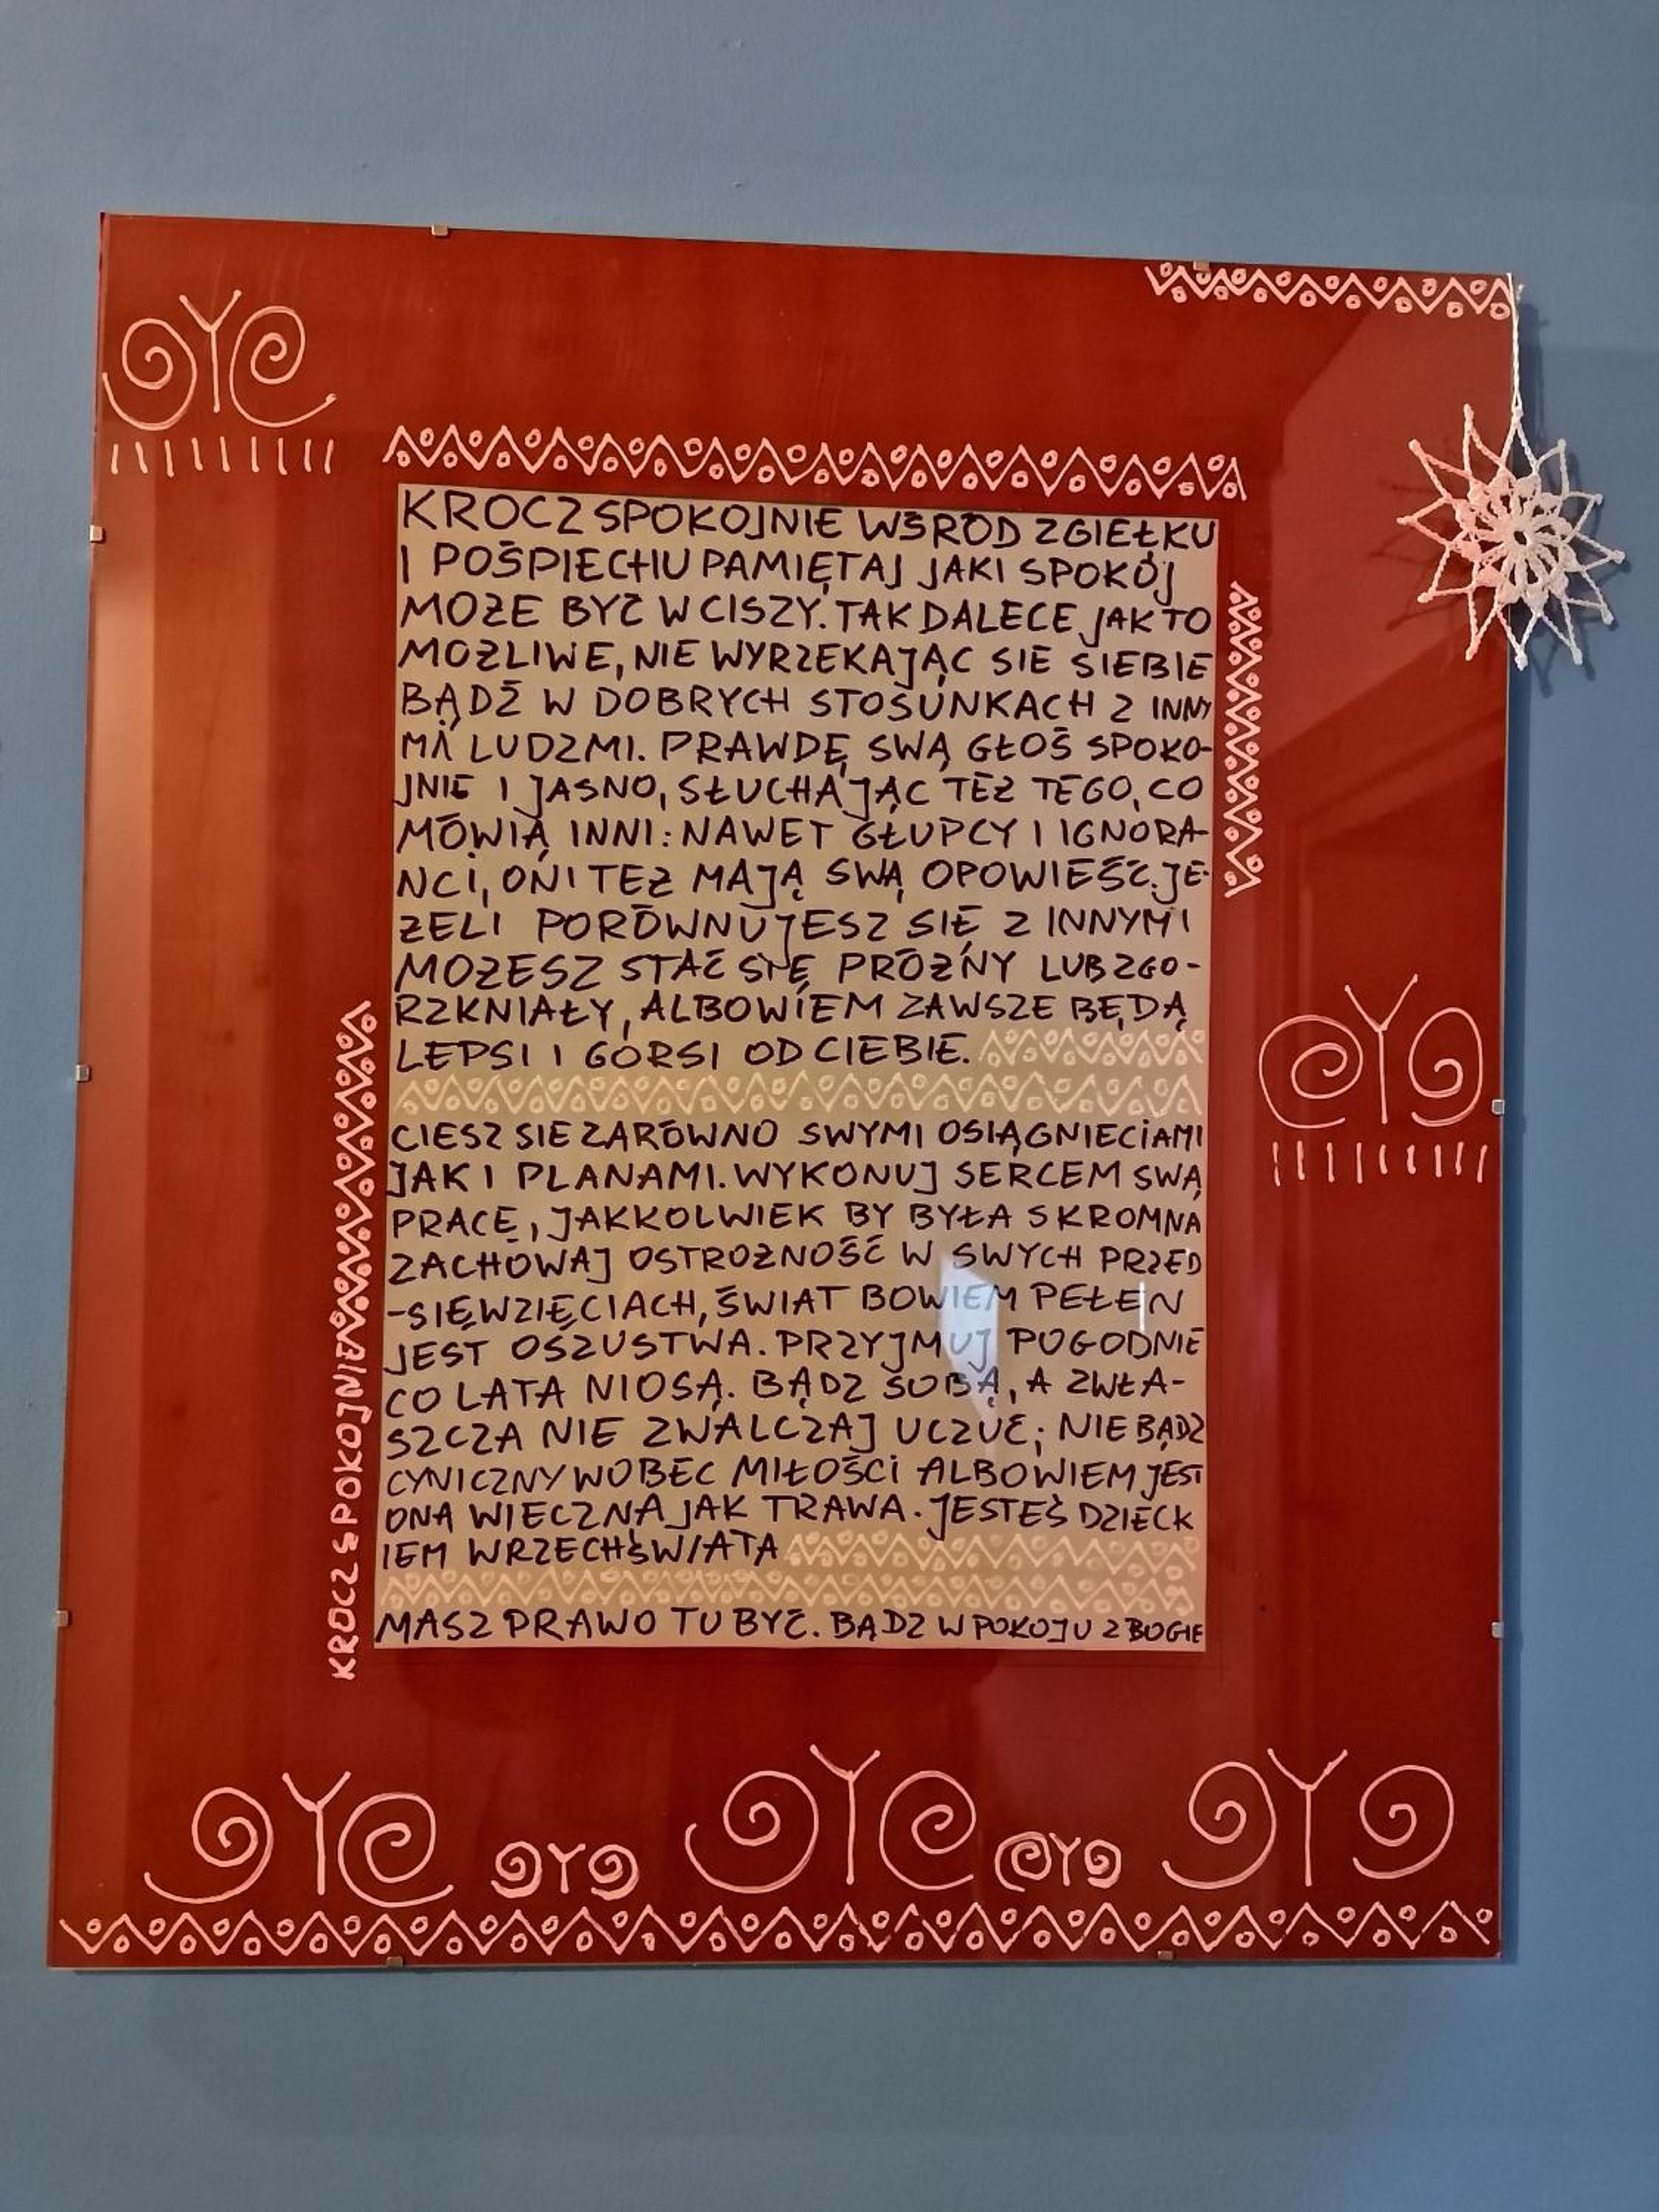 KROCZ SPOKOJNIE WŚRÓD ZGIEŁKU
I POŚPIECHU PAMIĘTAJ JAKI SPOKÓJ
MOŻE BYĆ W CISZY. TAK DALECE JAK TO
MOŻLIWE, NIE WYRZEKAJĄC SIE SIEBIE
BĄDŹ W DOBRYCH STOSUNKACH Z INNY
MI LUDZMI. PRAWDĘ SWĄ GŁOŚ SPOKO-
JNIE I JASNO, SŁUCHAJĄC TEŻ TEGO, CO
MÓWIĄ INNI: NAWET GŁUPCY I IGNORA-
NCI, ONI TEŻ MAJĄ SWĄ OPOWIEŚĆ. JE-
ŻELI PORÓWNUJESZ SIĘ Z INNYMI
MOŻESZ STAĆ SIĘ PRÓŻNY LUB ZGO-
RZKNIAŁY, ALBOWIEM ZAWSZE BĘDĄ
LEPSI I GORSI OD CIEBIE.
CIESZ SIE ZARÓWNO SWYMI OSIĄGNIECIAMI
JAK I PLANAMI. WYKONUJ SERCEM SWĄ
PRACĘ, JAKKOLWIEK BY BYŁA SKROMNA
ZACHOWAJ OSTROŻNOŚĆ W SWYCH PRZED
-SIĘWZIĘCIACH, ŚWIAT BOWIEM PEŁEN
JEST OSZUSTWA. PRZYJMUJ POGODNIE
CO LATA NIOSĄ. BĄDZ SOBĄ, A ZWŁA-
SZCZA NIE ZWALCZAJ UCZUĆ; NIE BĄDZ
CYNICZNY WOBEC MIŁOŚCI ALBOWIEM JEST
ONA WIECZNA JAK TRAWA. JESTEŚ DZIECK
IEM WRZECHŚWIATA
MASZ PRAWO TU BYĆ. BĄDZ W POKOJU Z BOGIE
KROCZ SPOKOJNIE